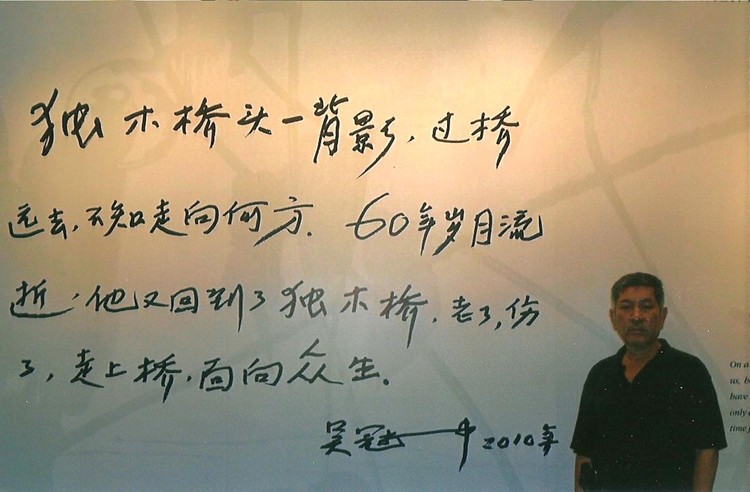 独木桥头一背影，过桥
远去，不知走向何方。60年岁月流
逝，他又回到了独木桥，老了，伤
了，走上桥，面向众生。
吴冠中 2010年
On a
us, h
have
only
time